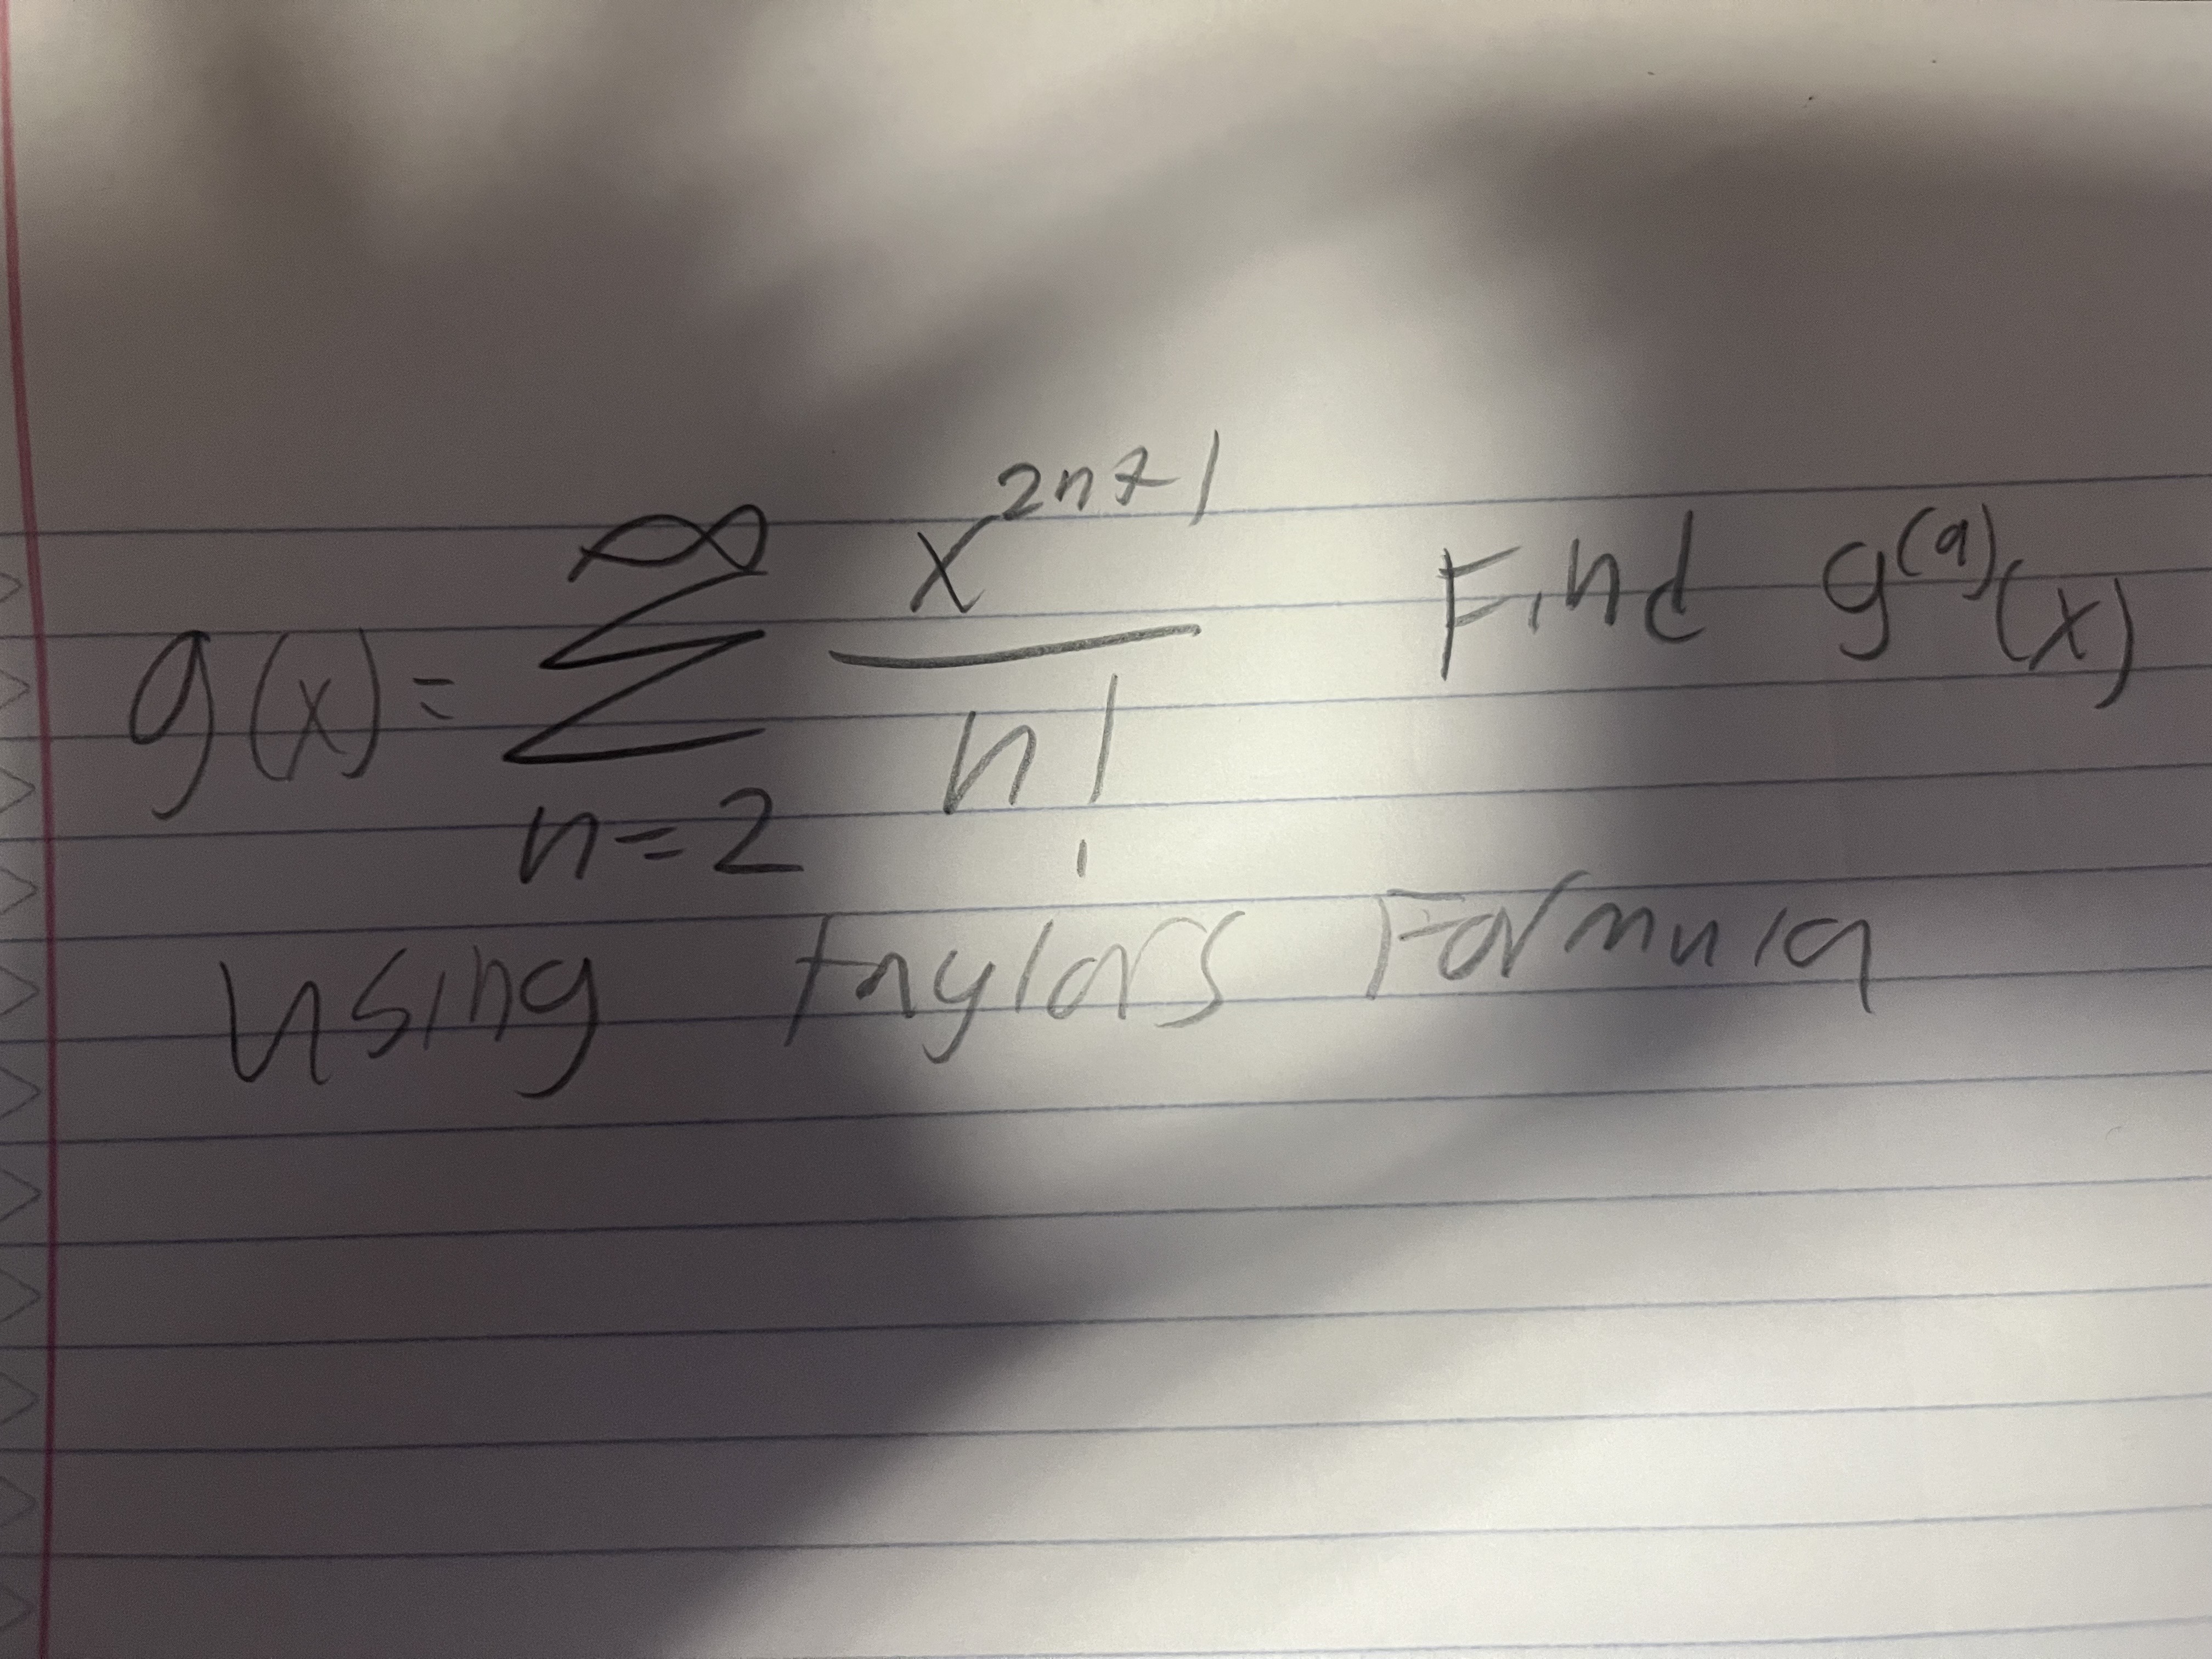 g(x) = ∞ Σ n=2 x^{2n+1} / n! Find g^{(9)}(x)
Using Taylors Formula